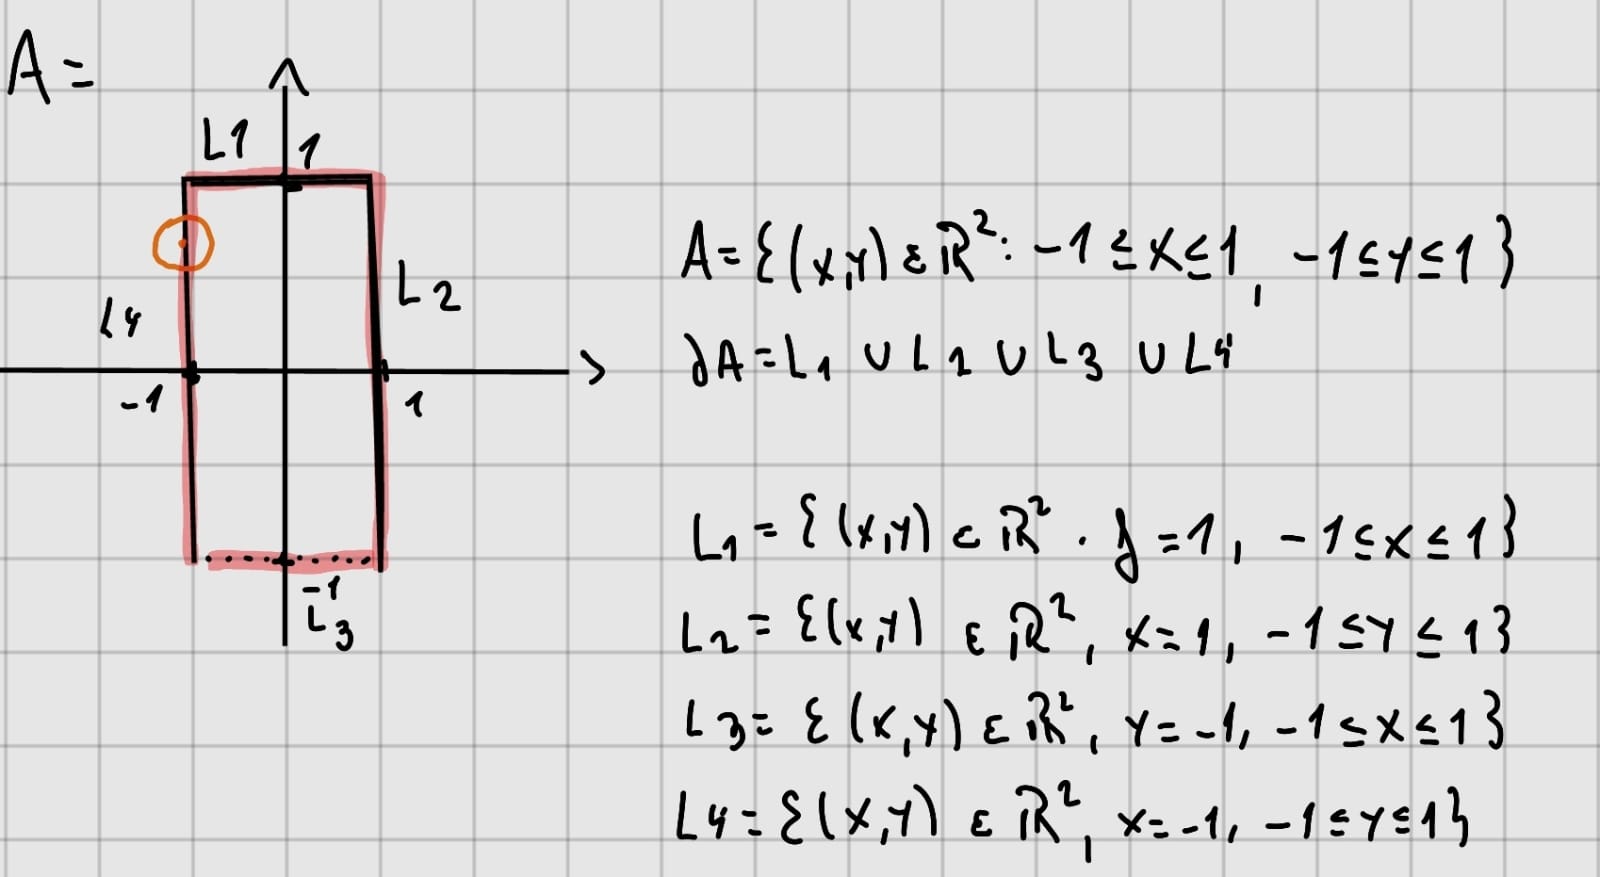 A =
L1 1
L2
L4
-1 1
-1
L3
A = {(x,y) ε ℝ²: -1 ≤ x ≤ 1, -1 ≤ y ≤ 1}
∂A = L1 ∪ L2 ∪ L3 ∪ L4
L1 = {(x,y) ε ℝ² . y = 1, -1 ≤ x ≤ 1}
L2 = {(x,y) ε ℝ², x = 1, -1 ≤ y ≤ 1}
L3 = {(x,y) ε ℝ², y = -1, -1 ≤ x ≤ 1}
L4 = {(x,y) ε ℝ², x = -1, -1 ≤ y ≤ 1}